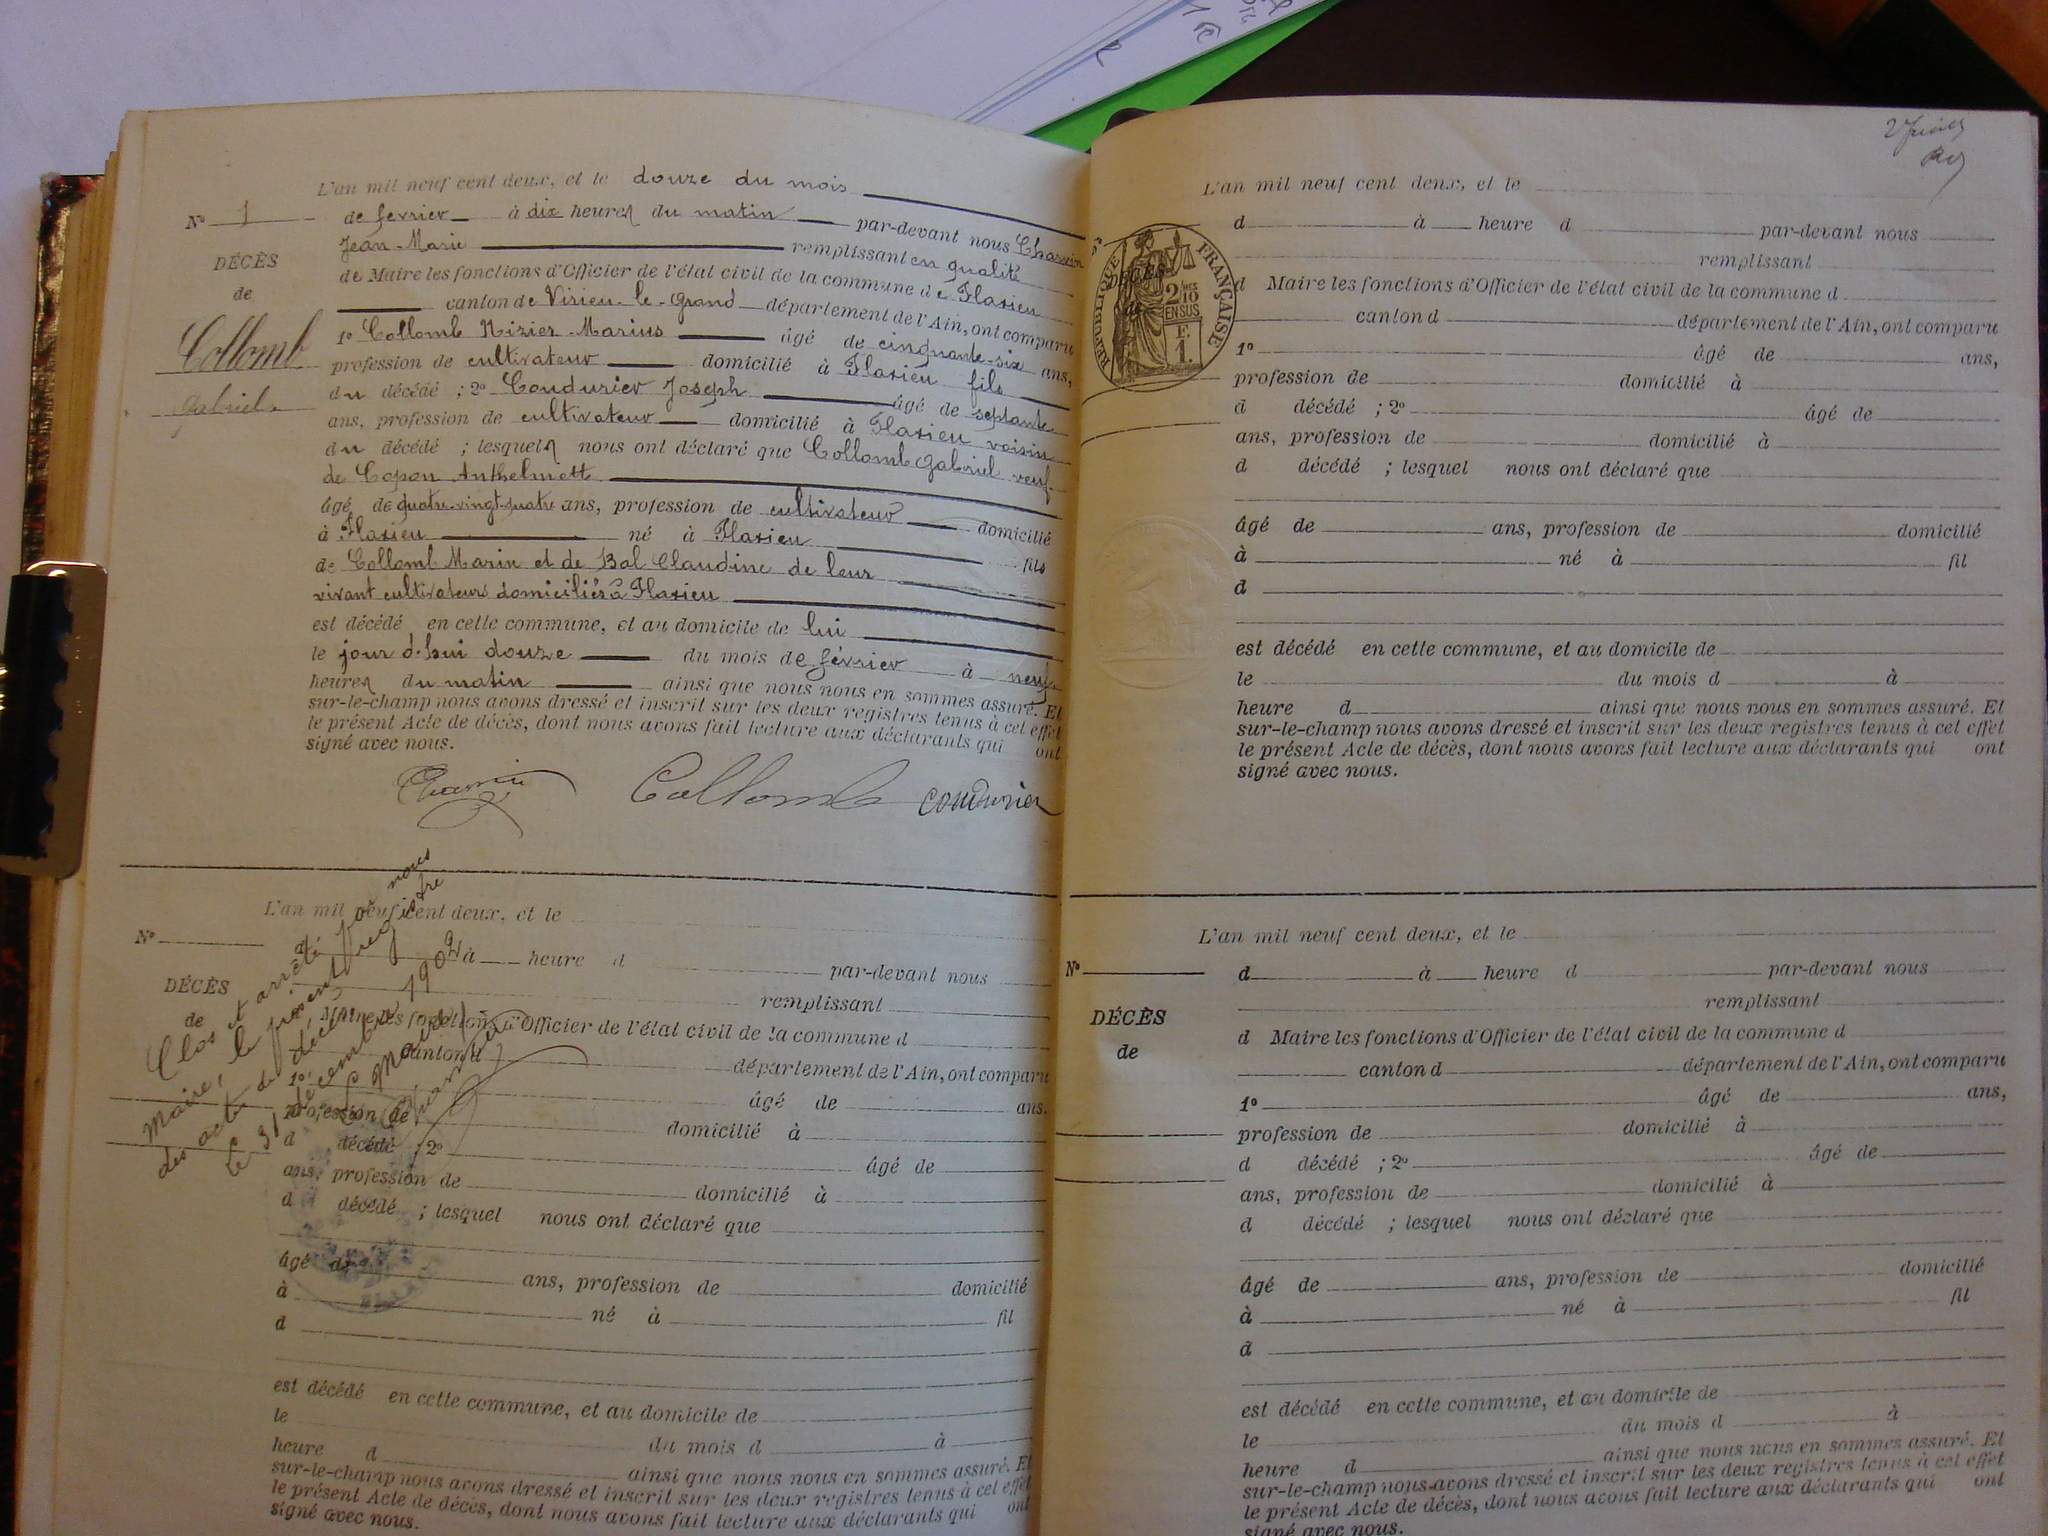 L'an mil neuf cent deux, et le douze du mois
No 1
de fevrier à dix heures du matin par-devant nous Charvin
Jean-Marie remplissant en qualité
DÉCÈS
de
Collomb
Gabriel
de Maire les fonctions d'Officier de l'état civil de la commune de Flaxieu
canton de Virieu-le-Grand département de l'Ain, ont comparu
1o Collomb Nizier-Marius âgé de cinquante-six ans,
profession de cultivateur domicilié à Flaxieu fils
du décédé ; 2o Coudurier Joseph âgé de septante
ans, profession de cultivateur domicilié à Flaxieu voisin
du décédé ; lesquels nous ont déclaré que Collomb Gabriel veuf
de Copon Anthelmette
âgé de quatre-vingt-quatre ans, profession de cultivateur domicilié
à Flaxieu né à Flaxieu fils
de Collomb Marin et de Bal Claudine de leur
vivant cultivateurs domiciliés à Flaxieu
est décédé en cette commune, et au domicile de lui
le jour d'hui douze du mois de février à neuf
heures du matin ainsi que nous nous en sommes assuré. Et
sur-le-champ nous avons dressé et inscrit sur les deux registres tenus à cet effet
le présent Acte de décès, dont nous avons fait lecture aux déclarants qui ont
signé avec nous.
Charvin Collomb Coudurier
L'an mil neuf cent deux, et le
No
à heure d par-devant nous
remplissant
DÉCÈS
de
Clos et arrêté par nous
Maire, le présent registre
des actes de décès
le 31 décembre 1902
Le Maire
Charvin
Maire les fonctions d'Officier de l'état civil de la commune d
canton d département de l'Ain, ont comparu
1o âgé de ans.
profession de domicilié à
d décédé ; 2o âgé de
ans, profession de domicilié à
d décédé ; lesquel nous ont déclaré que
âgé de ans, profession de domicilié
à né à fil
d
est décédé en cette commune, et au domicile de
le du mois d à
heure d ainsi que nous nous en sommes assuré. Et
sur-le-champ nous avons dressé et inscrit sur les deux registres tenus à cet effet
le présent Acte de décès, dont nous avons fait lecture aux déclarants qui ont
signé avec nous.
L'an mil neuf cent deux, et le
d à heure d par-devant nous
remplissant
RÉPUBLIQUE FRANÇAISE
DÉCÈS
de
2/10
EN SUS
F.
1.
d Maire les fonctions d'Officier de l'état civil de la commune d
canton d département de l'Ain, ont comparu
1o âgé de ans,
profession de domicilié à
d décédé ; 2o âgé de
ans, profession de domicilié à
d décédé ; lesquel nous ont déclaré que
âgé de ans, profession de domicilié
à né à fil
d
est décédé en cette commune, et au domicile de
le du mois d à
heure d ainsi que nous nous en sommes assuré. Et
sur-le-champ nous avons dressé et inscrit sur les deux registres tenus à cet effet
le présent Acte de décès, dont nous avons fait lecture aux déclarants qui ont
signé avec nous.
L'an mil neuf cent deux, et le
No
d à heure d par-devant nous
remplissant
DÉCÈS
de
d Maire les fonctions d'Officier de l'état civil de la commune d
canton d département de l'Ain, ont comparu
1o âgé de ans,
profession de domicilié à
d décédé ; 2o âgé de
ans, profession de domicilié à
d décédé ; lesquel nous ont déclaré que
âgé de ans, profession de domicilié
à né à fil
d
est décédé en cette commune, et au domicile de
le du mois d à
heure d ainsi que nous nous en sommes assuré. Et
sur-le-champ nous avons dressé et inscrit sur les deux registres tenus à cet effet
le présent Acte de décès, dont nous avons fait lecture aux déclarants qui ont
signé avec nous.